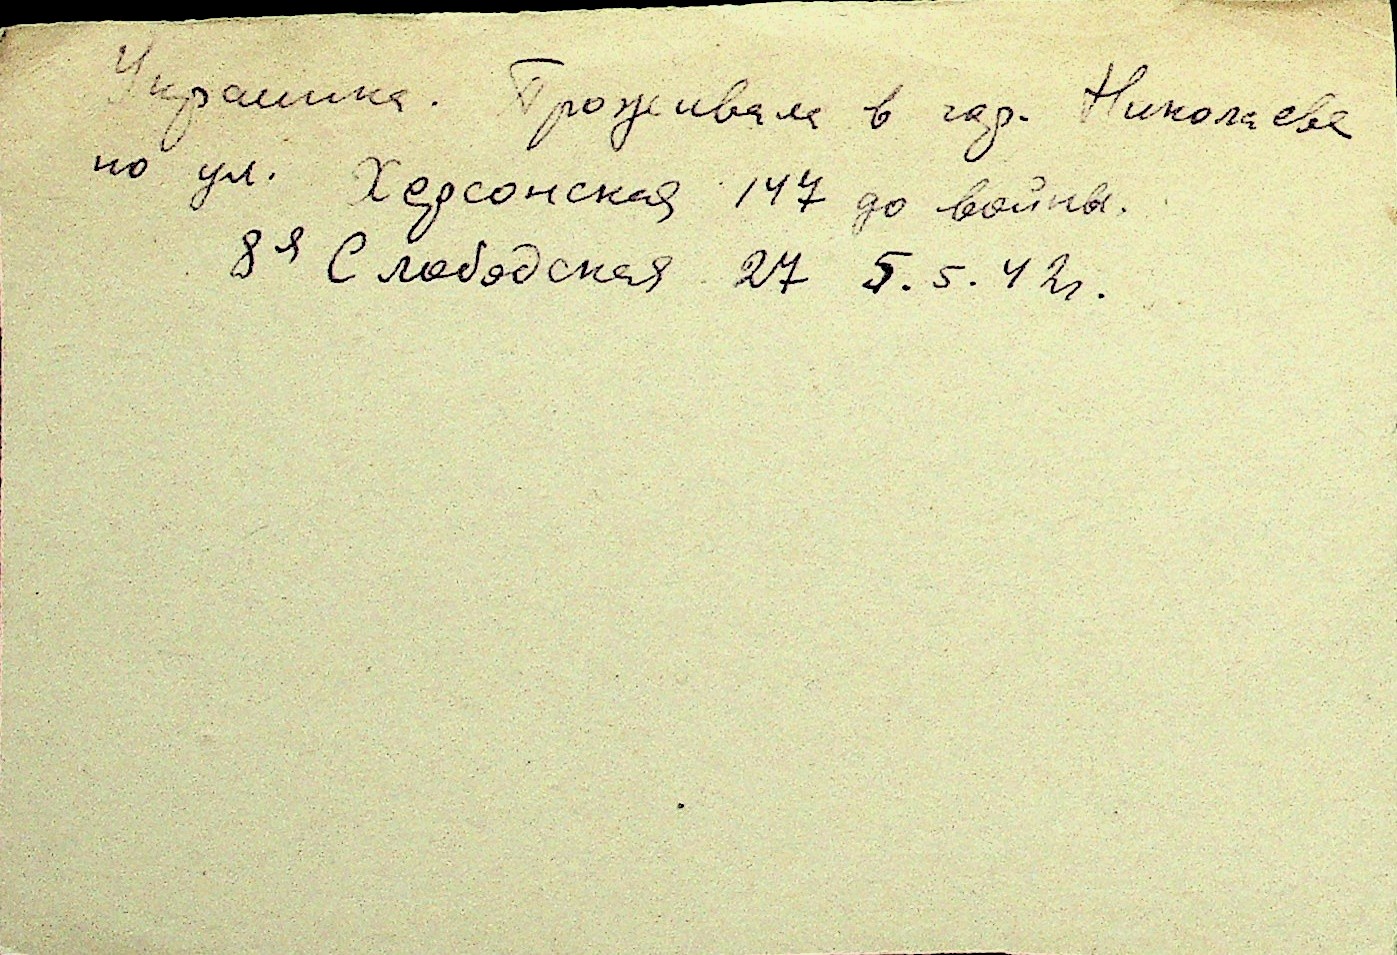 Украинка. Проживала в гор. Николаеве
по ул. Херсонская 147 до войны.
8я Слободская 27 5.5.42г.